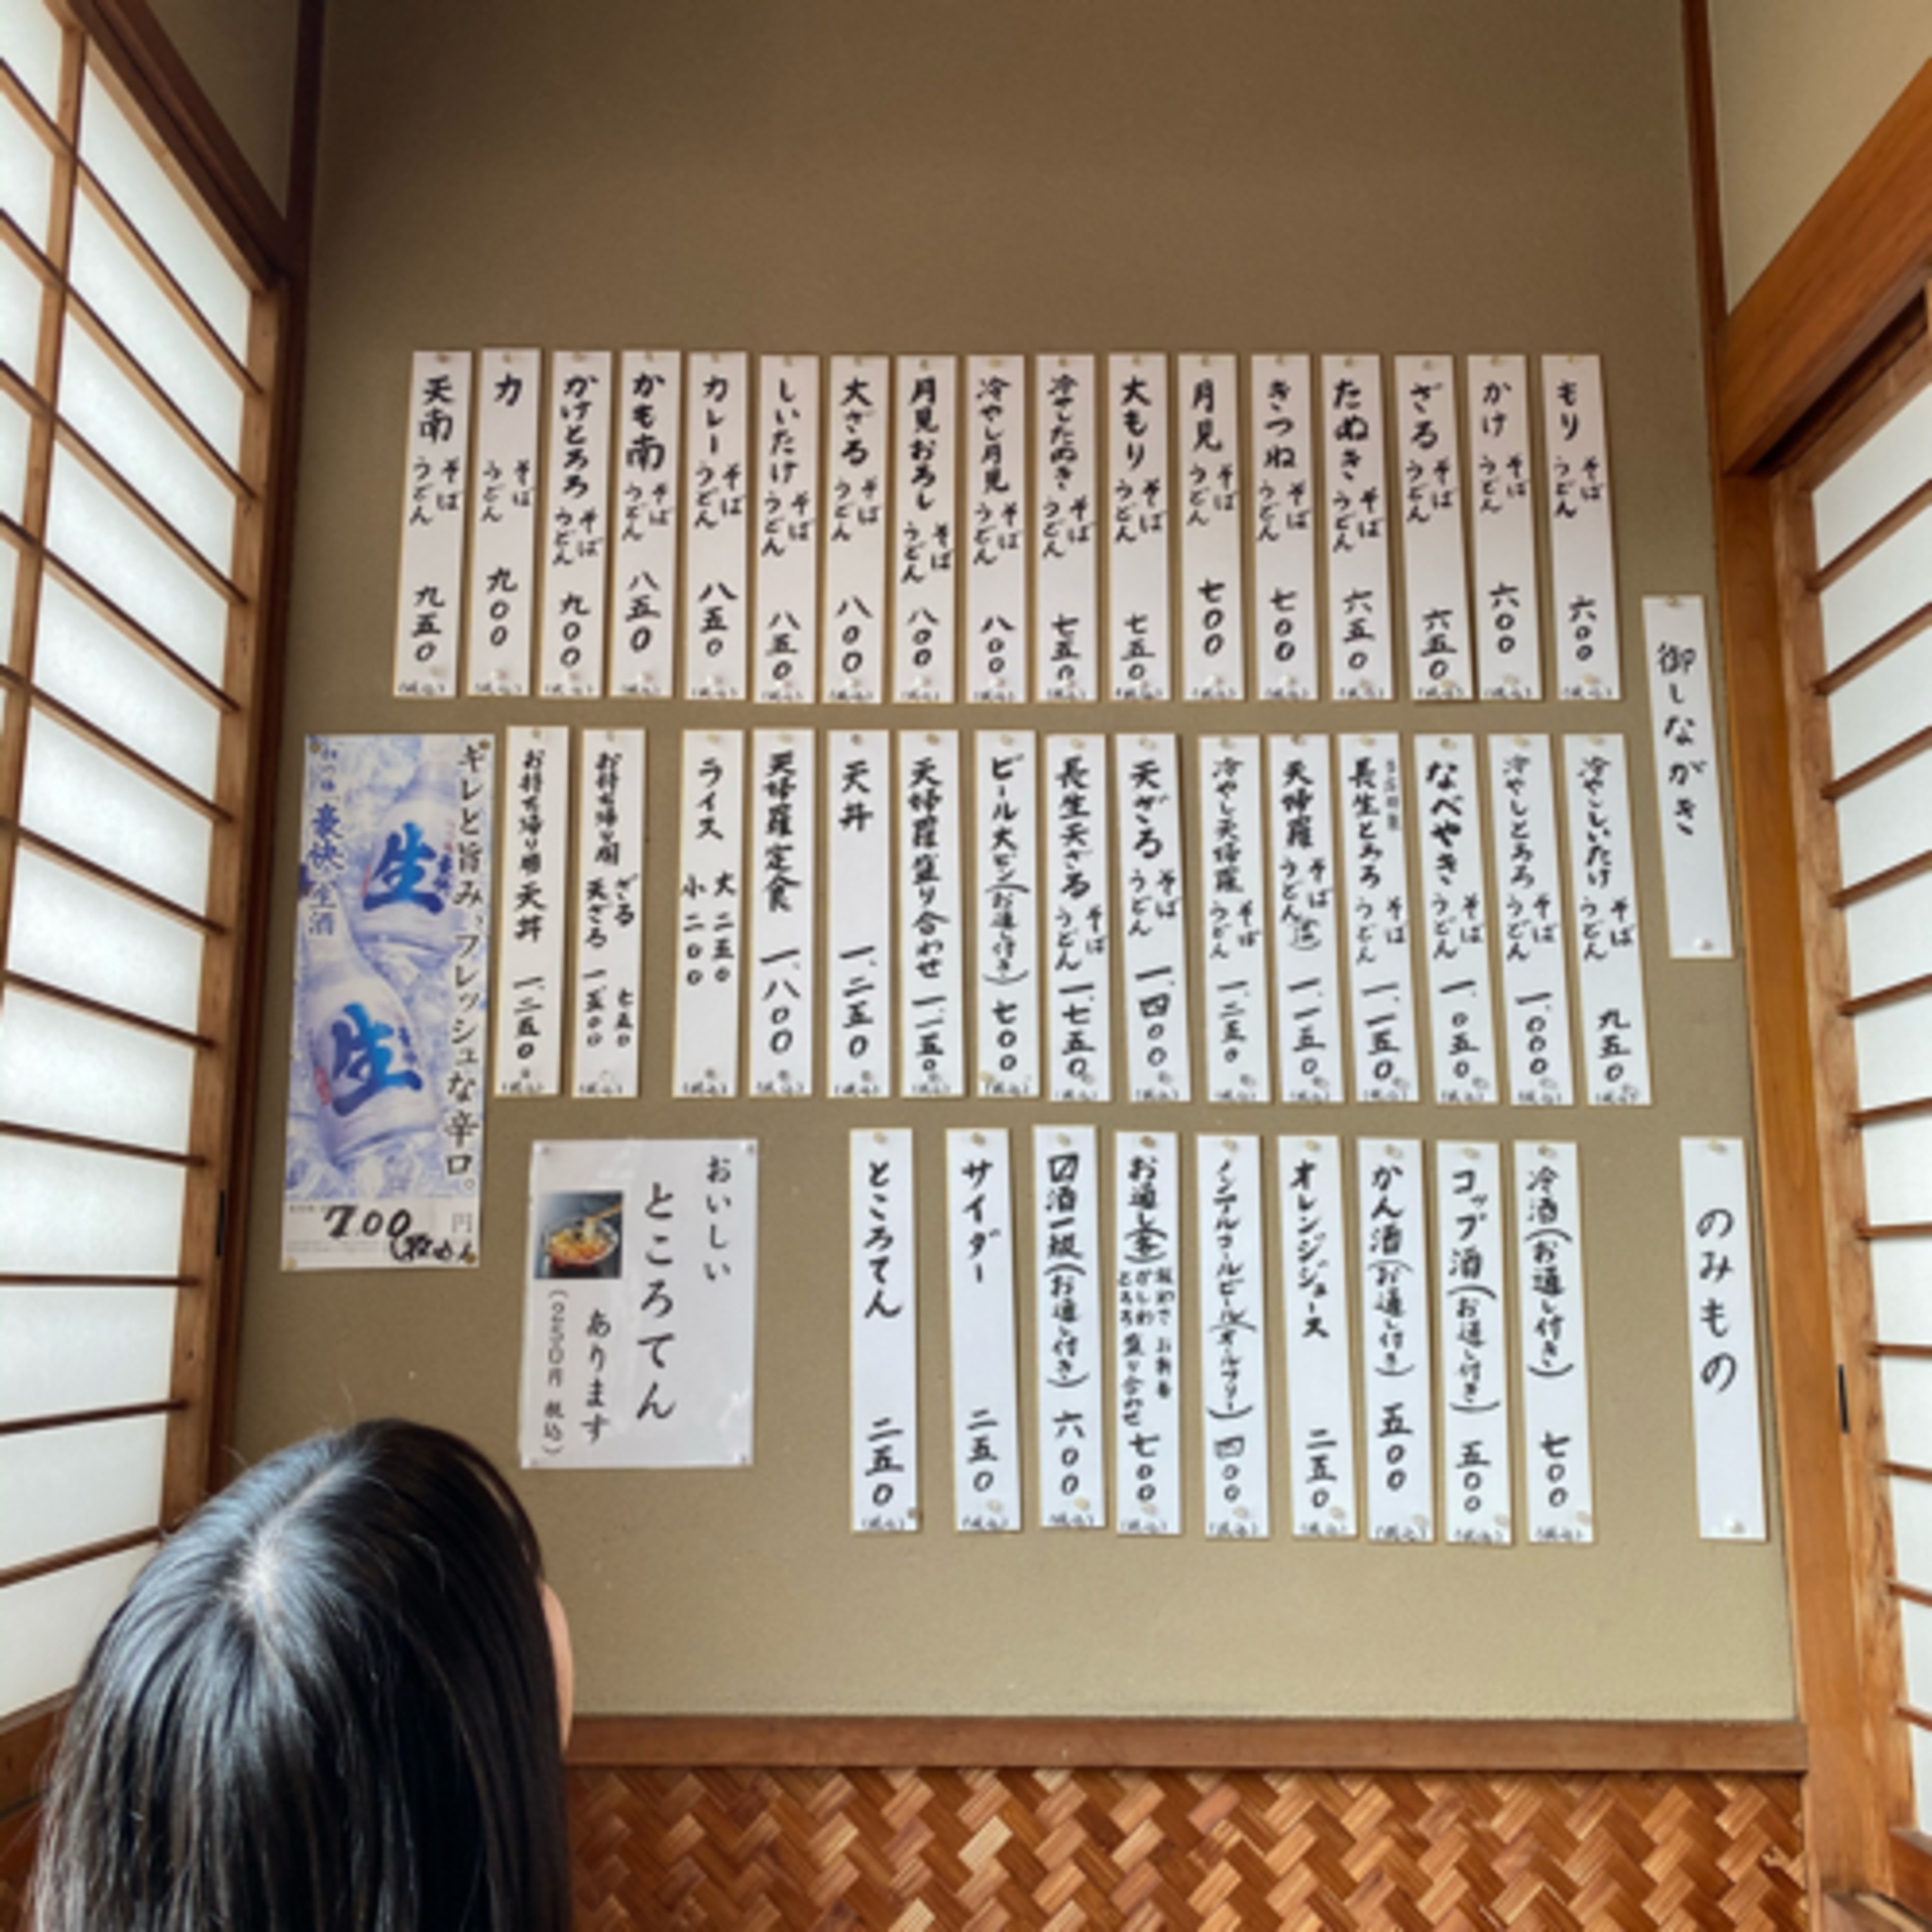 御しながき
もり そば うどん 六〇〇
かけ そば うどん 六〇〇
ざる そば うどん 六五〇
たぬき そば うどん 六五〇
きつね そば うどん 七〇〇
月見 そば うどん 七〇〇
大もり そば うどん 七五〇
冷やしたぬき そば うどん 七五〇
冷やし月見 そば うどん 八〇〇
月見おろし そば うどん 八〇〇
大ざる そば うどん 八〇〇
しいたけ そば うどん 八五〇
カレー そば うどん 八五〇
かも南 そば うどん 八五〇
かけとろろ そば うどん 九〇〇
力 そば うどん 九〇〇
天南 そば うどん 九五〇
冷やししいたけ そば うどん 九五〇
冷やしとろろ そば うどん 一、〇〇〇
なべやき そば うどん 一、〇五〇
長生とろろ そば うどん 一、一五〇
天婦羅 そば うどん 一、一五〇
冷やし天婦羅 そば うどん 一、二五〇
天ざる そば うどん 一、四〇〇
長生天ざる そば うどん 一、七五〇
ビール大ビン(お通し付き) 七〇〇
天婦羅盛り合わせ 一、一五〇
天丼 一、二五〇
天婦羅定食 一、八〇〇
ライス 大 二五〇 小 二〇〇
お持ち帰り用 ざる 七五〇 天ざる 一、五〇〇
お持ち帰り用 天丼 一、二五〇
キレと旨み、フレッシュな辛口。
生
生
豪快 生酒
700円
のみもの
冷酒(お通し付き) 七〇〇
コップ酒(お通し付き) 五〇〇
かん酒(お通し付き) 五〇〇
オレンジジュース 二五〇
ノンアルコールビール(オールフリー) 四〇〇
お通し 盛り合わせ 七〇〇
酒一級(お通し付き) 六〇〇
サイダー 二五〇
ところてん 二五〇
おいしい
ところてん
あります
(250円 税込)